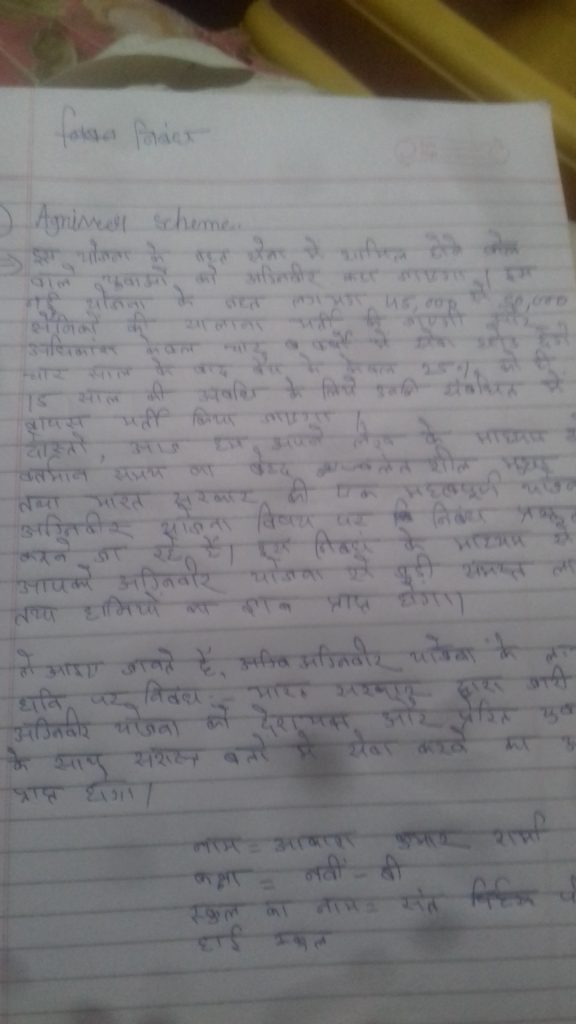 निबंध
Agniveer scheme..
इस योजना के तहत सेना में शामिल होने
वाले युवाओं को अग्निवीर कहा जाएगा । इस
नई योजना के तहत लगभग 45,000 से 50,000
सैनिकों की सालाना भर्ती की जाएगी
अधिकांश केवल चार वर्षों में सेवा छोड़ देंगे
चार साल के बाद केवल 25% को ही
15 साल की अवधि के लिये उनकी में
वापस भर्ती किया जाएगा ।
दोस्तों, आज हम अपने लेख के माध्यम से
वर्तमान समय का बेहद शील
तथा भारत सरकार की एक महत्वपूर्ण
अग्निवीर योजना विषय पर निबंध
करने जा रहे हैं। इस निबंध के माध्यम से
आपको अग्निवीर योजना से जुड़ी समस्त
तथा हानियों का ज्ञान प्राप्त होगा।
जानते हैं, अग्निवीर योजना के
पर निबंध - भारत सरकार द्वारा जारी
अग्निवीर योजना को देशभक्त और प्रेरित
के साथ सशस्त्र बलों में सेवा करने का
प्राप्त होगा।
नाम = आकाश कुमार शर्मा
कक्षा = नवीं - बी
स्कूल का नाम = संत
हाई स्कूल